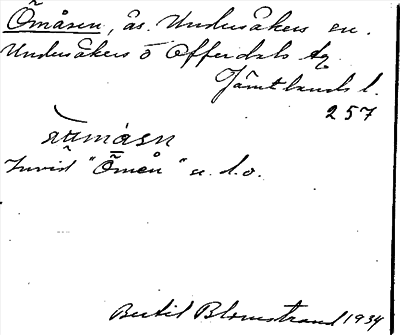 Õmåsen, ås. Undersåkers sn.
Undersåkers o Offerdals tg.
Jämtlands l.
257
Invid "Õmån" u. d. o.
Bertil Blomstrand 1934